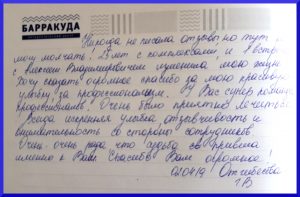 БАРРАКУДА
Никогда не писала отзывы, но тут не
могу молчать! 20 лет с комплексами и встреча
с Алексеем Владимировичем изменила мою жизнь.
Хочу сказать огромное спасибо за мою красивую
улыбку, за профессионализм. У Вас супер
профессионалов. Очень было приятно лечиться
Всегда искренняя улыбка, отзывчивость и
внимательность со стороны сотрудников.
Очень, очень рада что судьба
именно к Вам. Спасибо Вам огромное!